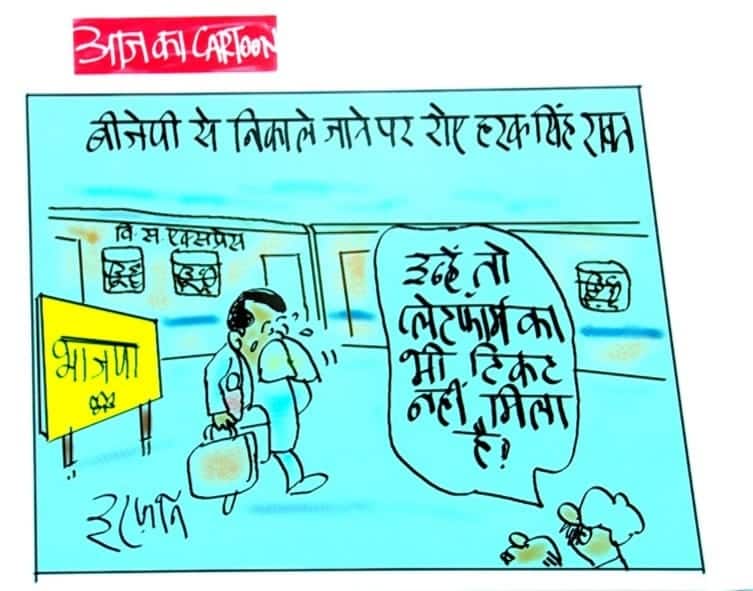 आज का CARTOON
बीजेपी से निकाले जाने पर रोए हरक सिंह रावत
वि.स. एक्सप्रेस
भाजपा
उन्हें तो
प्लेटफॉर्म का
भी टिकट
नहीं मिला
है!
इरफ़ान